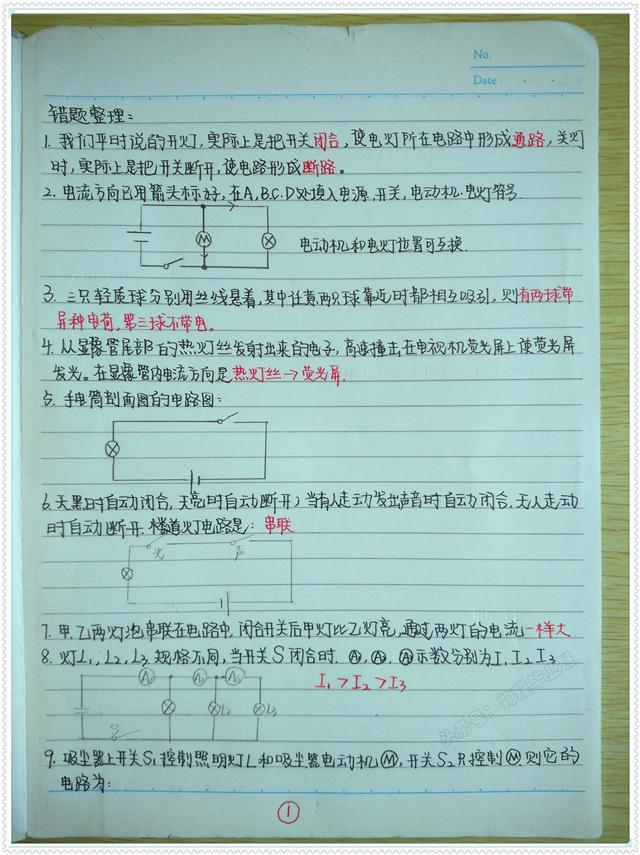 No.
Date
错题整理:
1. 我们平时说的开灯,实际上是把开关闭合,使电灯所在电路中形成通路,关灯
时,实际上是把开关断开,使电路形成断路。
2. 电流方向已用箭头标好,在A、B、C、D处填入电源、开关,电动机、电灯符号.
M
电动机和电灯位置可互换.
3. 三只轻质球分别用丝线悬着,其中任意两只球靠近时都相互吸引,则有两球带
异种电荷,第三球不带电。
4. 从显像管尾部的热灯丝发射出来的电子,高速撞击在电视机荧光屏上使荧光屏
发光。在显像管内电流方向是热灯丝→荧光屏.
5. 手电筒剖面图的电路图:
6. 天黑时自动闭合,天亮时自动断开;当有人走动发出声音时自动闭合,无人走动
时自动断开.楼道灯电路是:串联
光 声
7. 甲、乙两灯泡串联在电路中,闭合开关后甲灯比乙灯亮,通过两灯的电流一样大
8. 灯L1,L2,L3规格不同,当开关S闭合时.A1,A2,A3示数分别为I1 I2 I3
I1>I2>I3
S L2 L3
9. 吸尘器上开关S1控制照明灯L和吸尘器电动机M,开关S2只控制M.则它的
电路为:
1